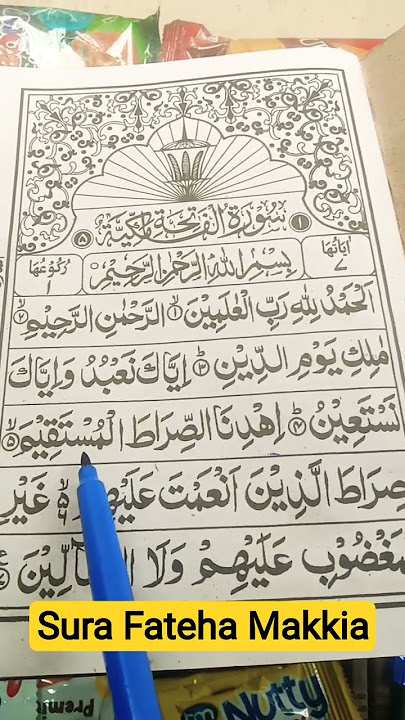 سُوْرَةُ الْفَاتِحَةِ مَكِّيَّةٌ
اٰيَاتُهَا ٧
بِسْمِ اللّٰهِ الرَّحْمٰنِ الرَّحِيْمِ
رُكُوْعُهَا ١
اَلْحَمْدُ لِلّٰهِ رَبِّ الْعٰلَمِيْنَ ١ الرَّحْمٰنِ الرَّحِيْمِ ٢
مٰلِكِ يَوْمِ الدِّيْنِ ٣ اِيَّاكَ نَعْبُدُ وَاِيَّاكَ
نَسْتَعِيْنُ ٤ اِهْدِنَا الصِّرَاطَ الْمُسْتَقِيْمَ ٥
صِرَاطَ الَّذِيْنَ اَنْعَمْتَ غَيْرِ
عَلَيْهِمْ وَلَا
Sura Fateha Makkia
Premi
Nutty